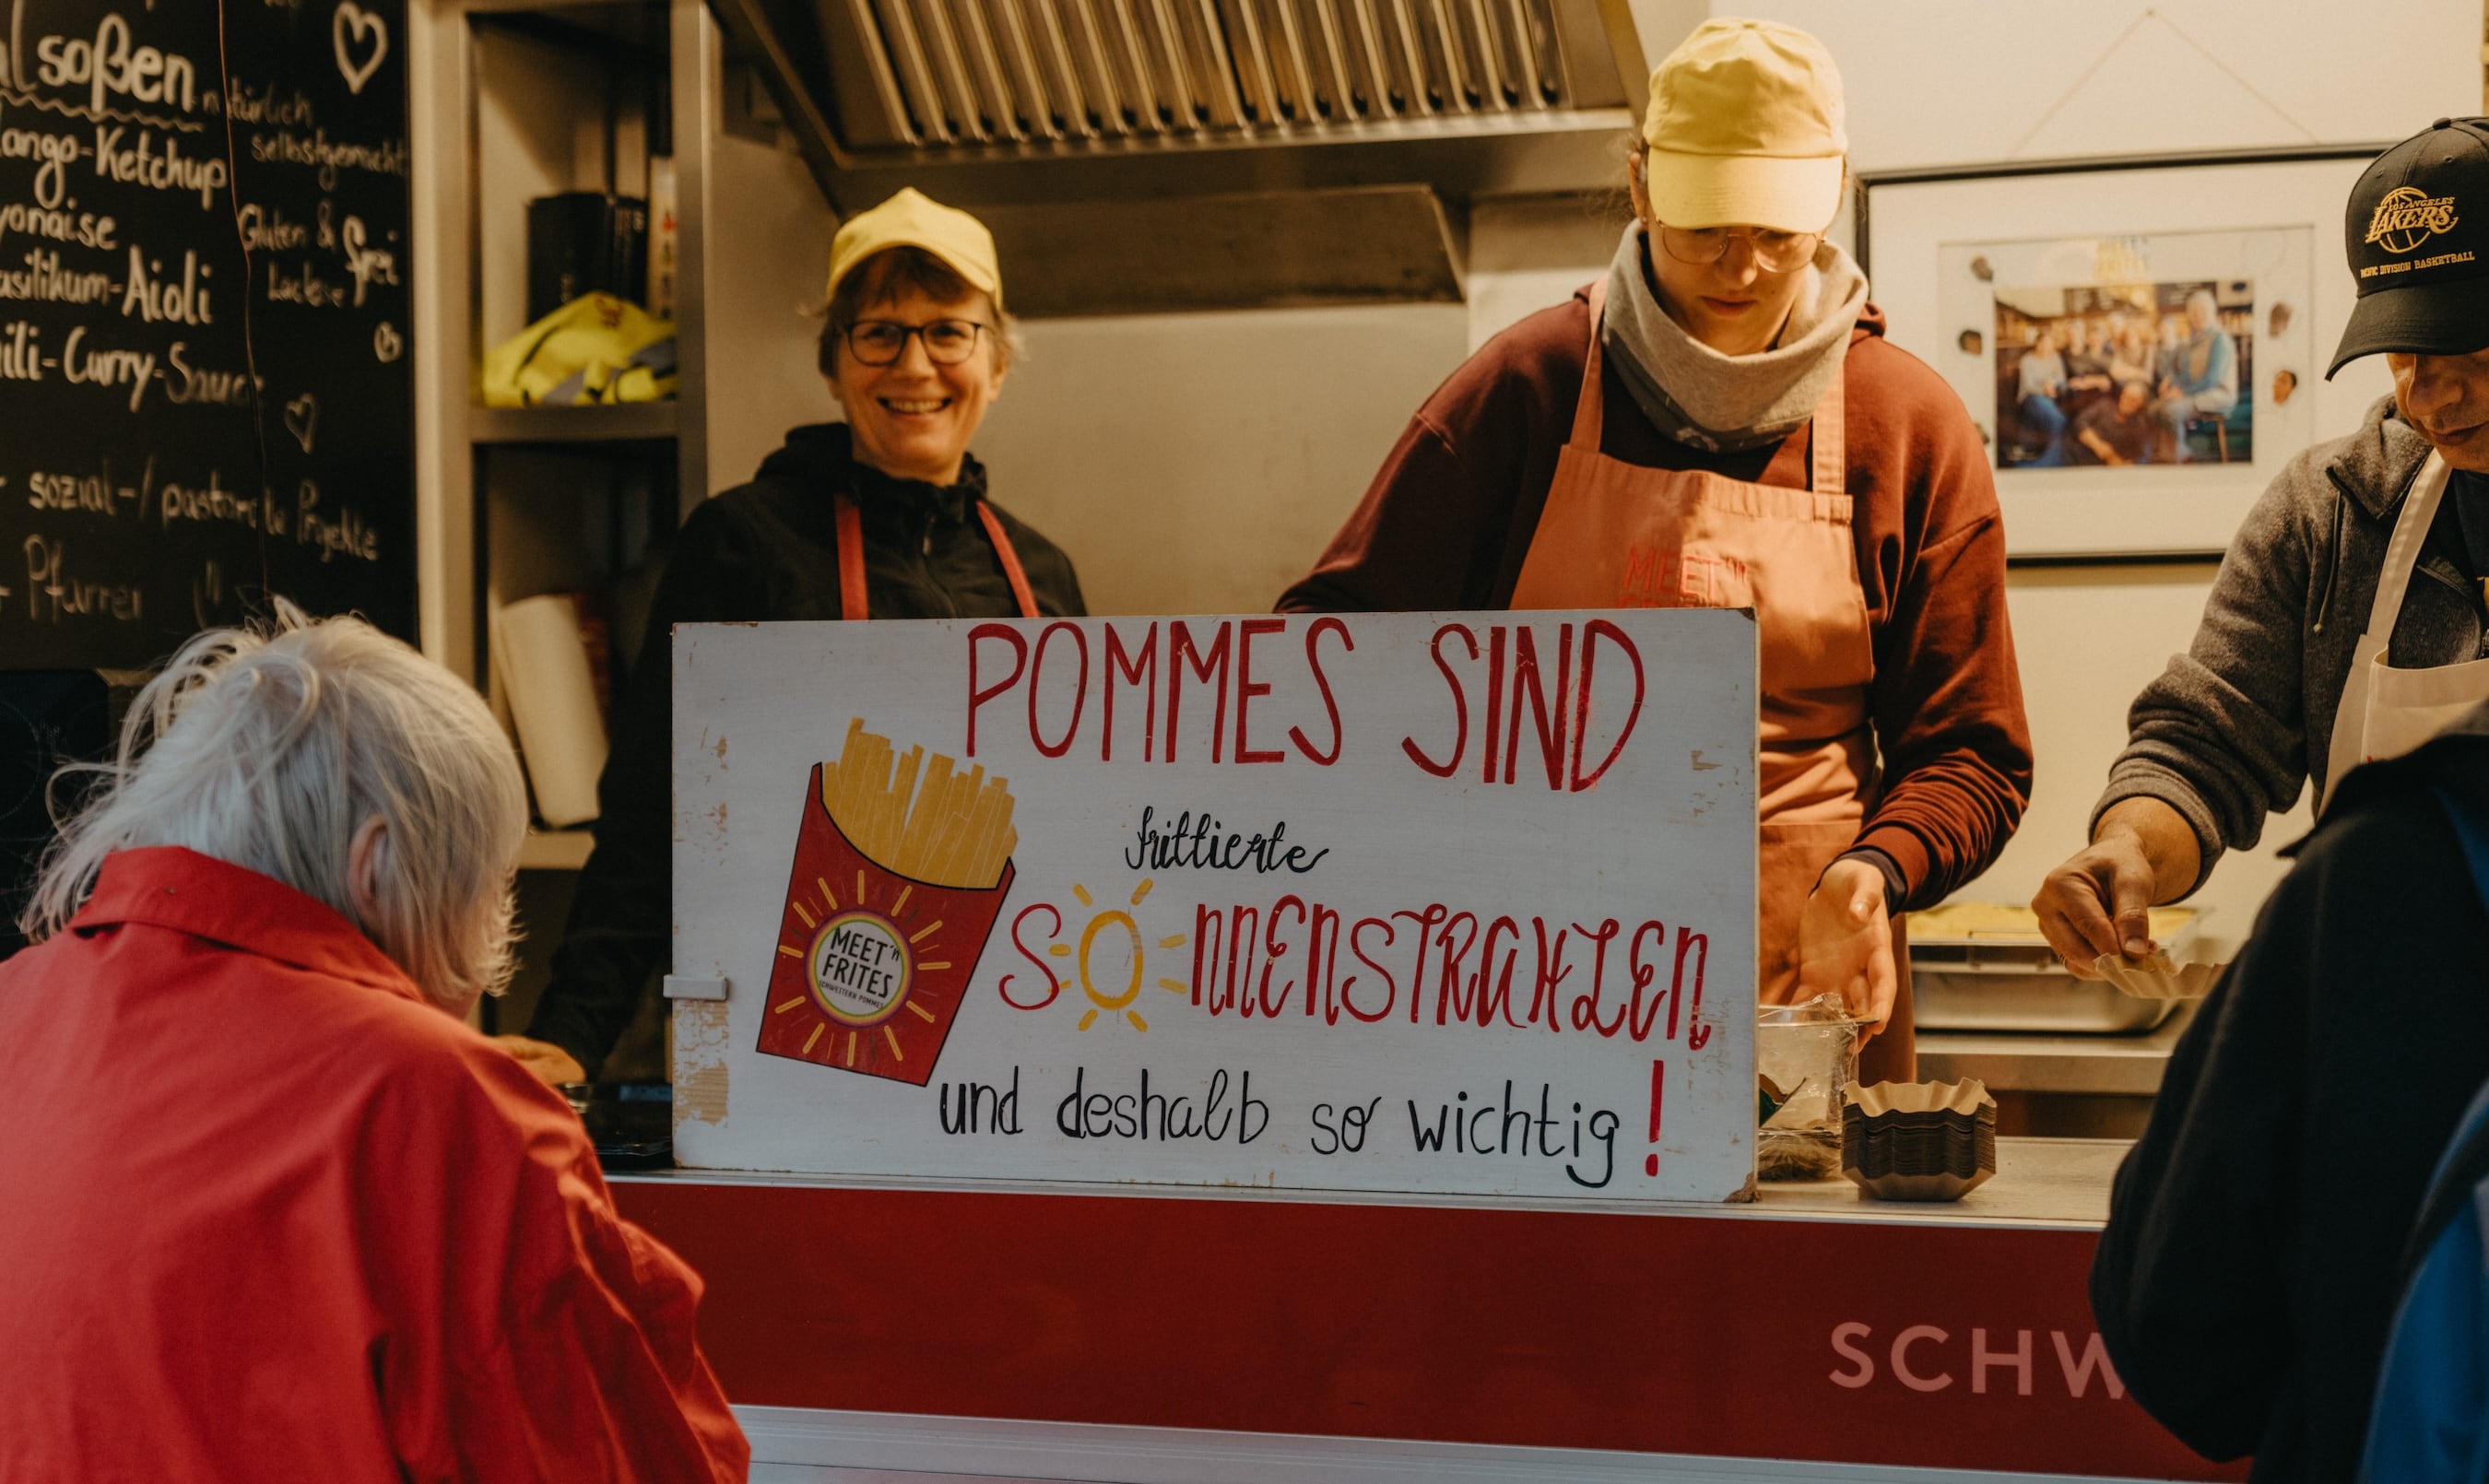 soßen
natürlich
selbstgemacht
ango-Ketchup
yonaise
Gluten &
Lactose frei
asilikum-Aioli
ili-Curry-Sauce
sozial-/pastorale Projekte
Pfarrei
LOS ANGELES
LAKERS
PACIFIC DIVISION BASKETBALL
MEET'n
POMMES SIND
frittierte
SONNENSTRAHLEN
und deshalb so wichtig!
MEET'n
FRITES
SCHWESTERN POMMES
SCHW